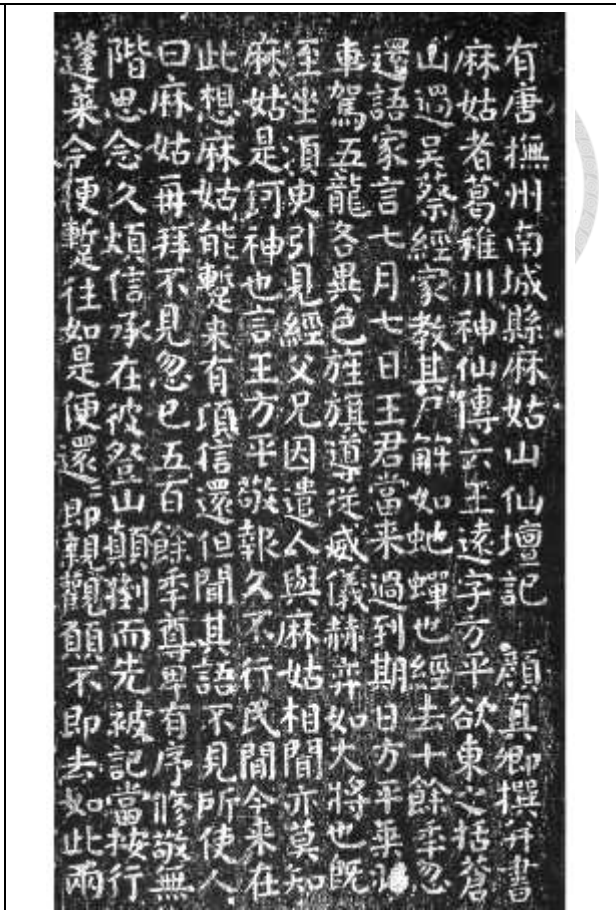 有唐撫州南城縣麻姑山仙壇記　顏真卿撰并書
麻姑者葛稚川神仙傳云王遠字方平欲東之括蒼
山過吳蔡經家教其尸解如虵蟬也經去十餘年忽
還語家言七月七日王君當来過到期日方平乗
車駕五龍各異色旌旗導従威儀赫弈如大將也既
至坐須臾引見經父兄因遣人與麻姑相聞亦莫知
麻姑是何神也言王方平敬報久不行民間今来在
此想麻姑能蹔来有頃信還但聞其語不見所使人
曰麻姑再拜不見忽已五百餘年尊卑有序修敬無
階思念久煩信承在彼登山顛倒而先被記當按行
蓬萊今便蹔往如是便還還即親觀願不即去如此兩